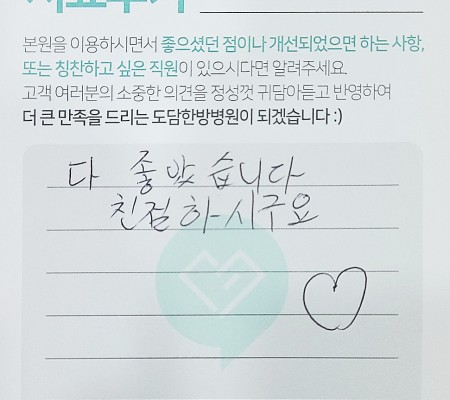 본원을 이용하시면서 좋으셨던 점이나 개선되었으면 하는 사항,
또는 칭찬하고 싶은 직원이 있으시다면 알려주세요.
고객 여러분의 소중한 의견을 정성껏 귀담아듣고 반영하여
더 큰 만족을 드리는 도담한방병원이 되겠습니다 :)
다 좋았습니다
친절하시구요